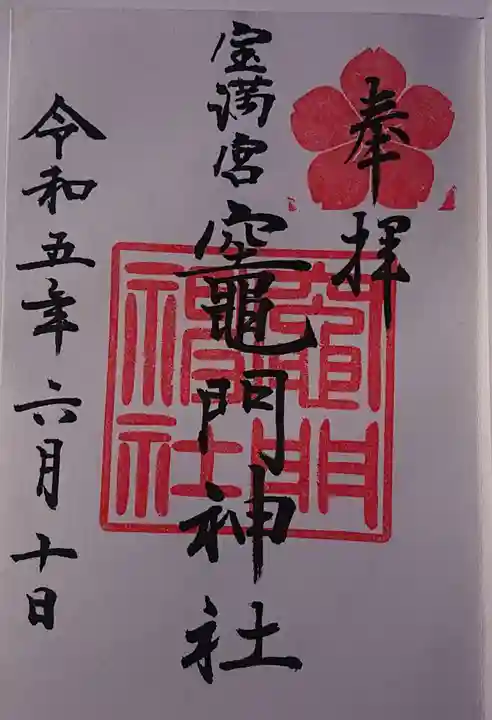 奉拝
宝満宮
竈門神社
令和五年六月十日
竈門
神社